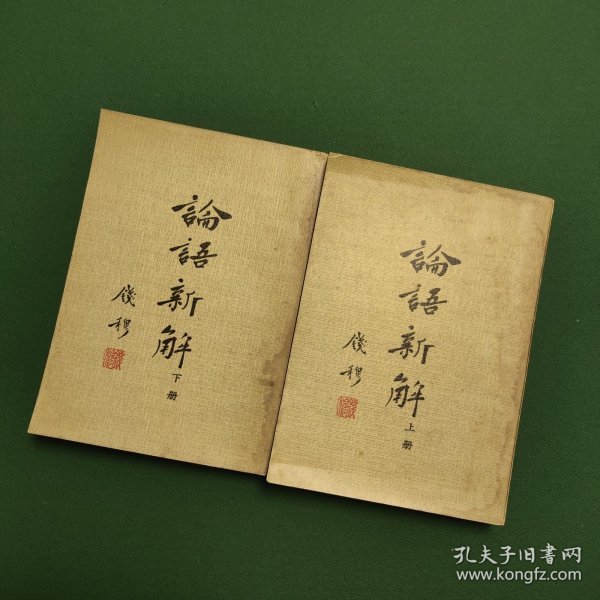 論語新解
上册
錢穆
論語新解
下册
錢穆
孔夫子旧书网
www.kongfz.com